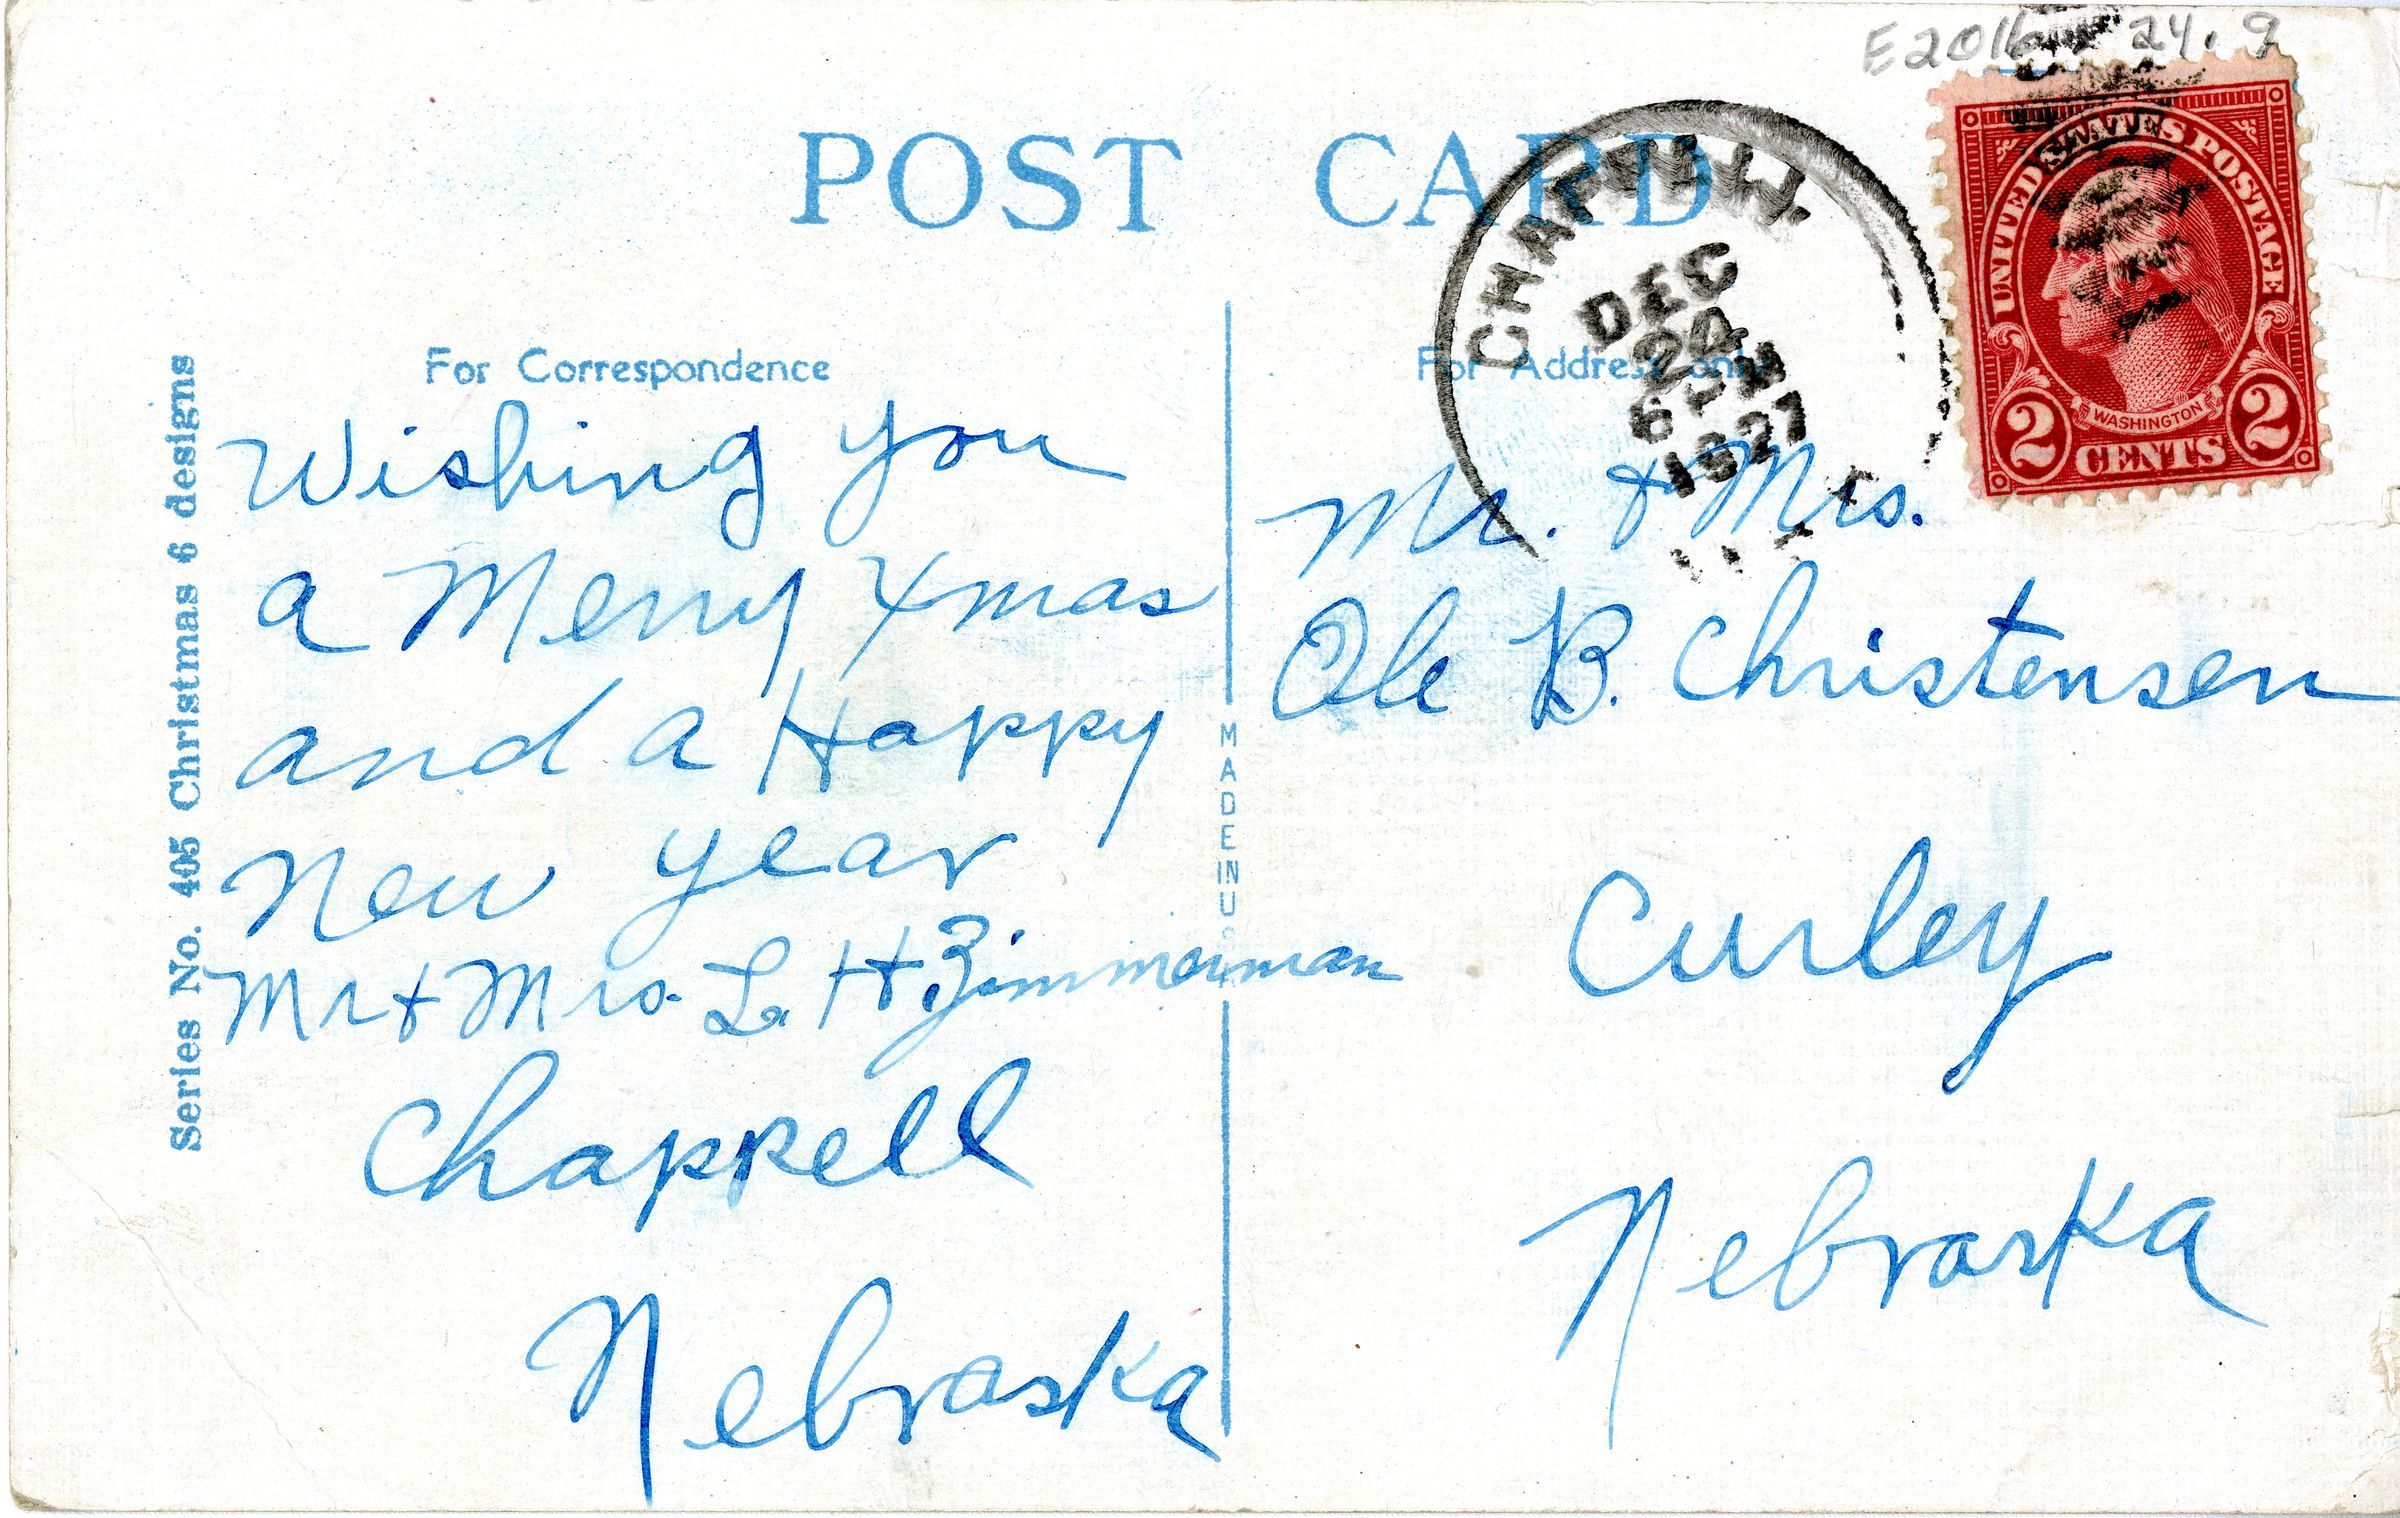 E2016 24.9
POST CARD
CHAPPELL
DEC
24
6 PM
1927
UNITED STATES POSTAGE
WASHINGTON
2 CENTS 2
Series No. 405 Christmas 6 designs
For Correspondence
Wishing you
a Merry Xmas
and a Happy
New year
Mr + Mrs. L. H. Zimmerman
Chappell
Nebraska
MADE IN U
For Address only
Mr. + Mrs.
Ole B. Christensen
Curley
Nebraska